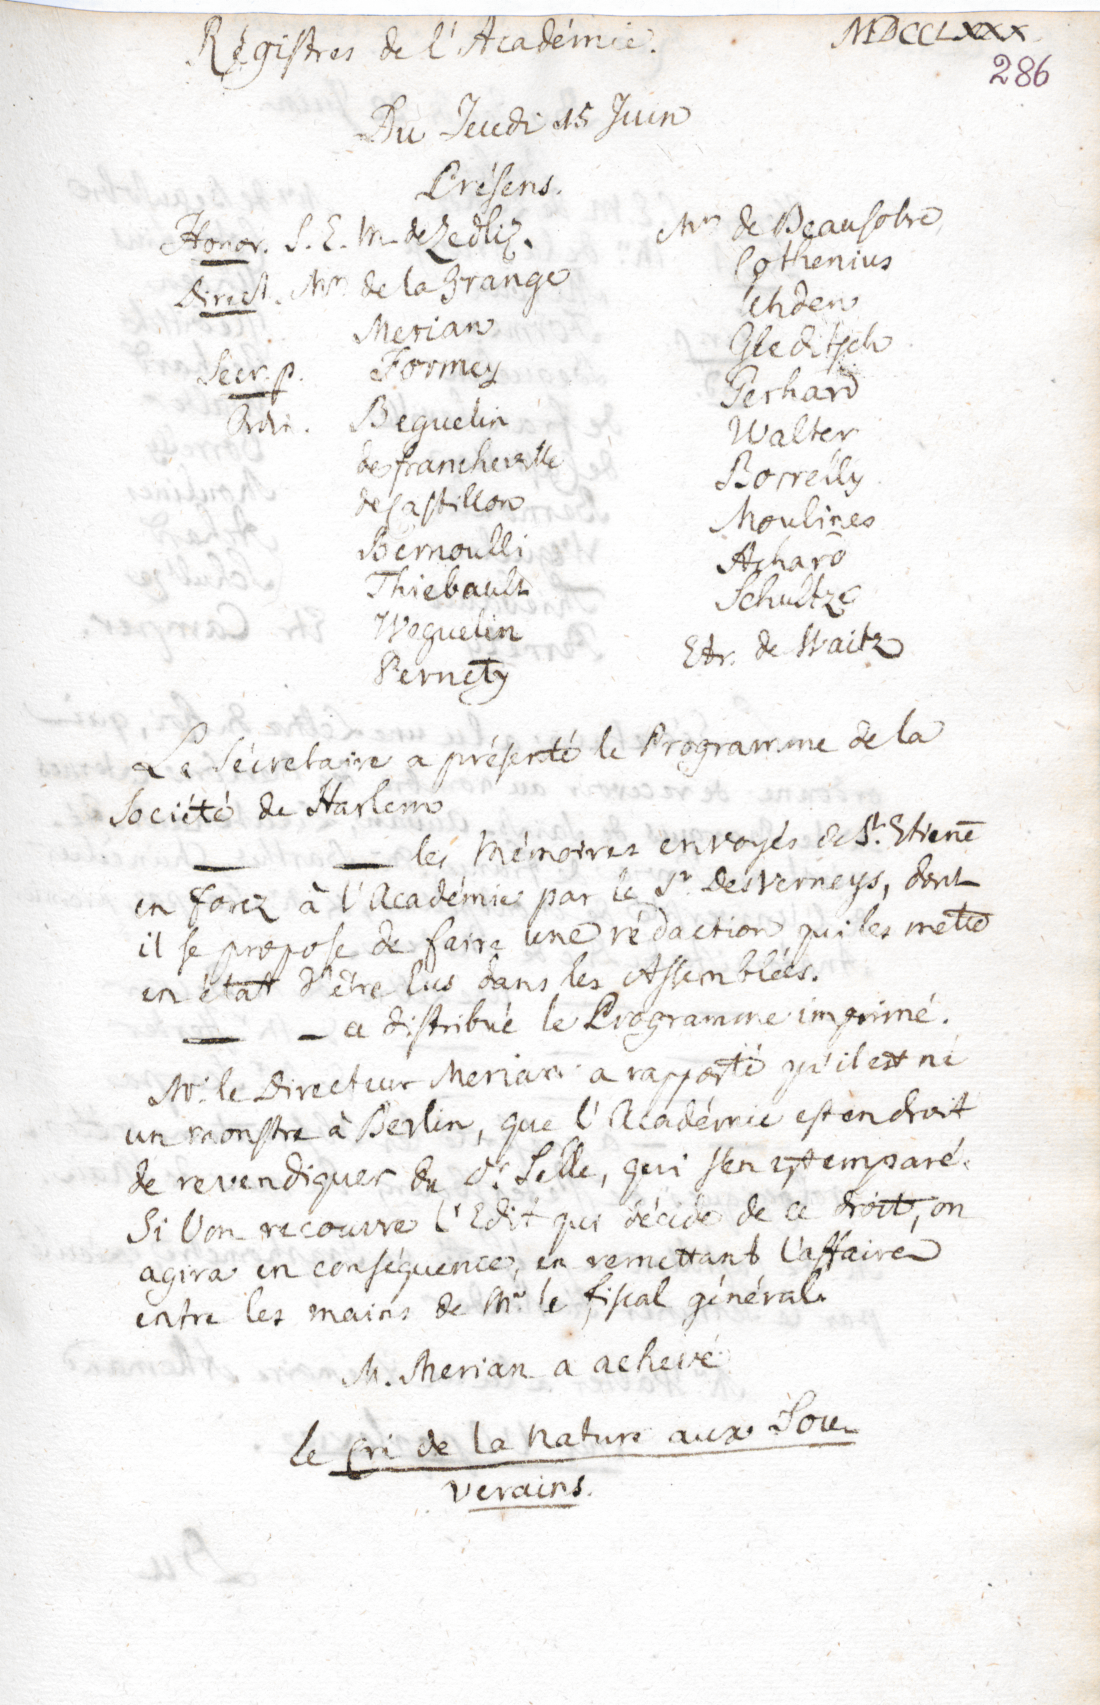 Régistres de l'Académie. MDCCLXXX
286
Du Jeudi 15 Juin
Présens.
Honor. S. E. M. de Zedlez.
Direct. Mrs. de la Grange
Merian
Secr. p. Formey
Ordin. Beguelin
de francheville
de Castillon
Bernoulli
Thiebault
Weguelin
Pernety
Mrs de Beausobre
Cothenius
Uhden
Gleditsch
Gerhard
Walter
Borrelly
Moulines
Achard
Schultze
Etr. de Waitz
Le Sécretaire a présenté le Programme de la
Société de Harlem
— — les Mémoires envoyés de St. Etiene
en forez à l'Académie par le Sr. Desverneys, dont
il se propose de faire une rédaction qui les mette
en état d'être lus dans les Assemblées.
— — a distribué le Programme imprimé.
Mr. le Directeur Merian a rapporté qu'il est né
un monstre à Berlin, que l'Académie est en droit
de revendiquer du Dr. Selle, qui s'en est emparé.
Si l'on recouvre l'Edit qui décide de ce droit, on
agira en conséquence, en remettant l'affaire
entre les mains de Mr. le fiscal général.
M. Merian a achevé
le Cri de la Nature aux Sou-
verains.